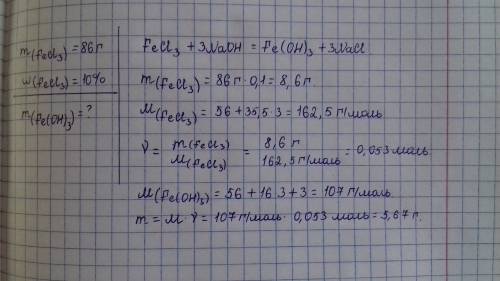 m(FeCl₃) = 86 г
w(FeCl₃) = 10%
m(Fe(OH)₃) = ?
FeCl₃ + 3NaOH = Fe(OH)₃ + 3NaCl
m(FeCl₃) = 86 г · 0,1 = 8,6 г.
M(FeCl₃) = 56 + 35,5 · 3 = 162,5 г/моль
ν = m(FeCl₃) / M(FeCl₃) = 8,6 г / 162,5 г/моль = 0,053 моль
M(Fe(OH)₃) = 56 + 16·3 + 3 = 107 г/моль
m = M · ν = 107 г/моль · 0,053 моль = 5,67 г.